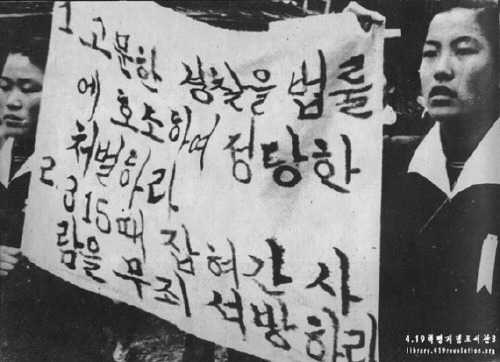 1 고문한 경찰을 법률
에 호소하여 정당한
처벌하라
2 315때 잡혀간 사
람을 무죄 석방하라
4.19혁명기념도서관
library.419revolution.org